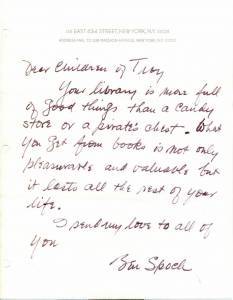 EAST 42nd STREET, NEW YORK, N.Y.
ADDRESS MAIL TO MADISON AVENUE, NEW YORK, N.Y.
Dear Children of Troy
Your library is more full
of good things than a candy
store or a pirate's chest. What
you get from books is not only
pleasurable and valuable but
it lasts all the rest of your
life.
I send my love to all of
you
Ben Spock